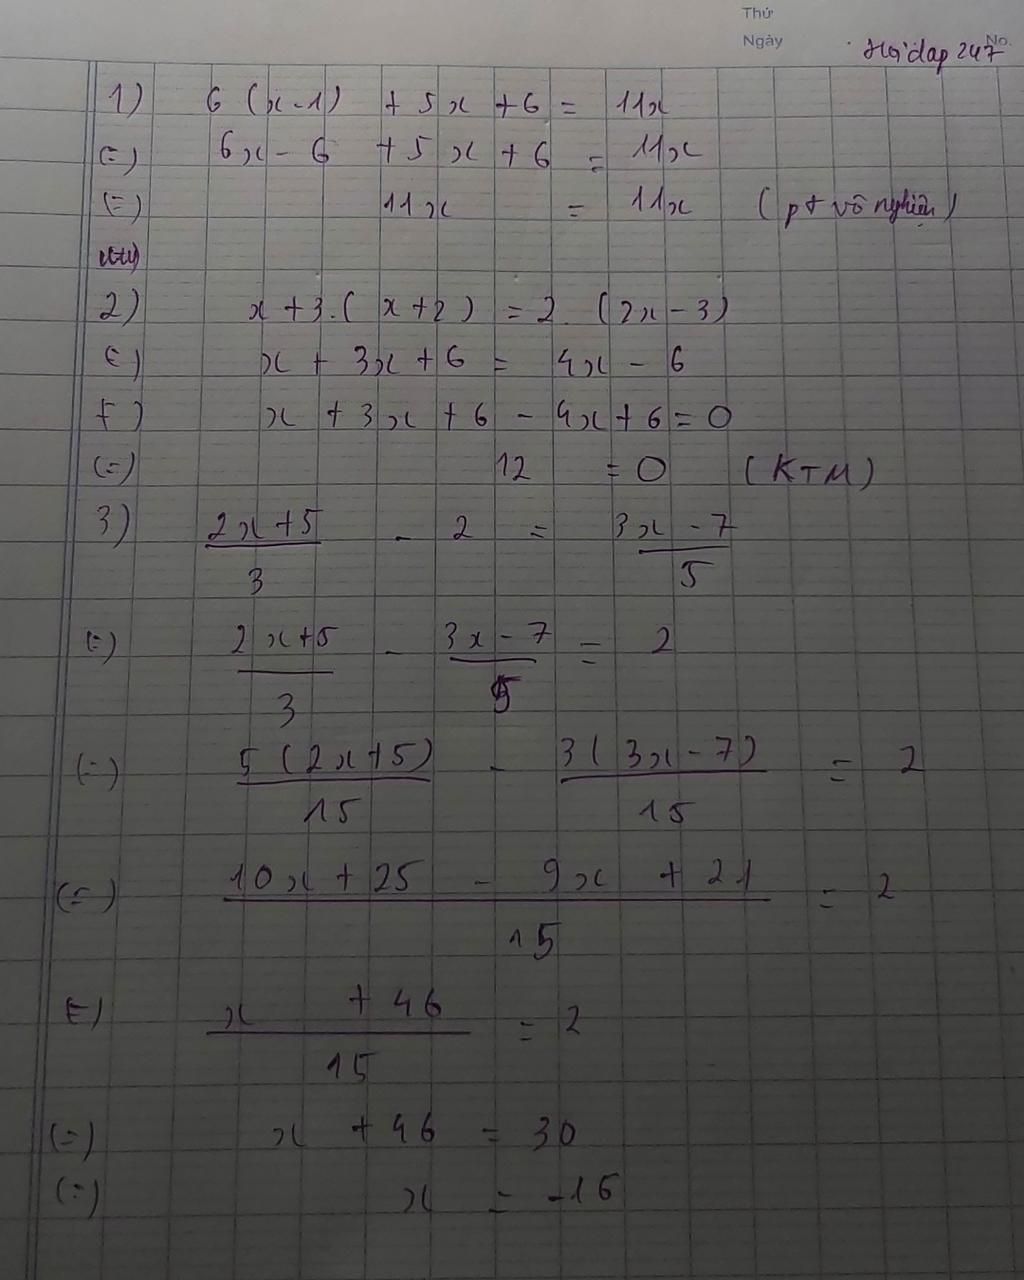 Thứ
Ngày No.
Hỏi đáp 247
1) 6 (x-1) + 5x + 6 = 11x
(=) 6x - 6 + 5x + 6 = 11x
(=) 11x = 11x (pt vô nghiệm)
2) x + 3.(x+2) = 2.(2x - 3)
(=) x + 3x + 6 = 4x - 6
(=) x + 3x + 6 - 4x + 6 = 0
(=) 12 = 0 (KTM)
3) (2x+5)/3 - 2 = (3x - 7)/5
(=) (2x+5)/3 - (3x - 7)/5 = 2
(=) 5(2x+5)/15 - 3(3x - 7)/15 = 2
(=) (10x + 25 - 9x + 21)/15 = 2
(=) (x + 46)/15 = 2
(=) x + 46 = 30
(=) x = -16